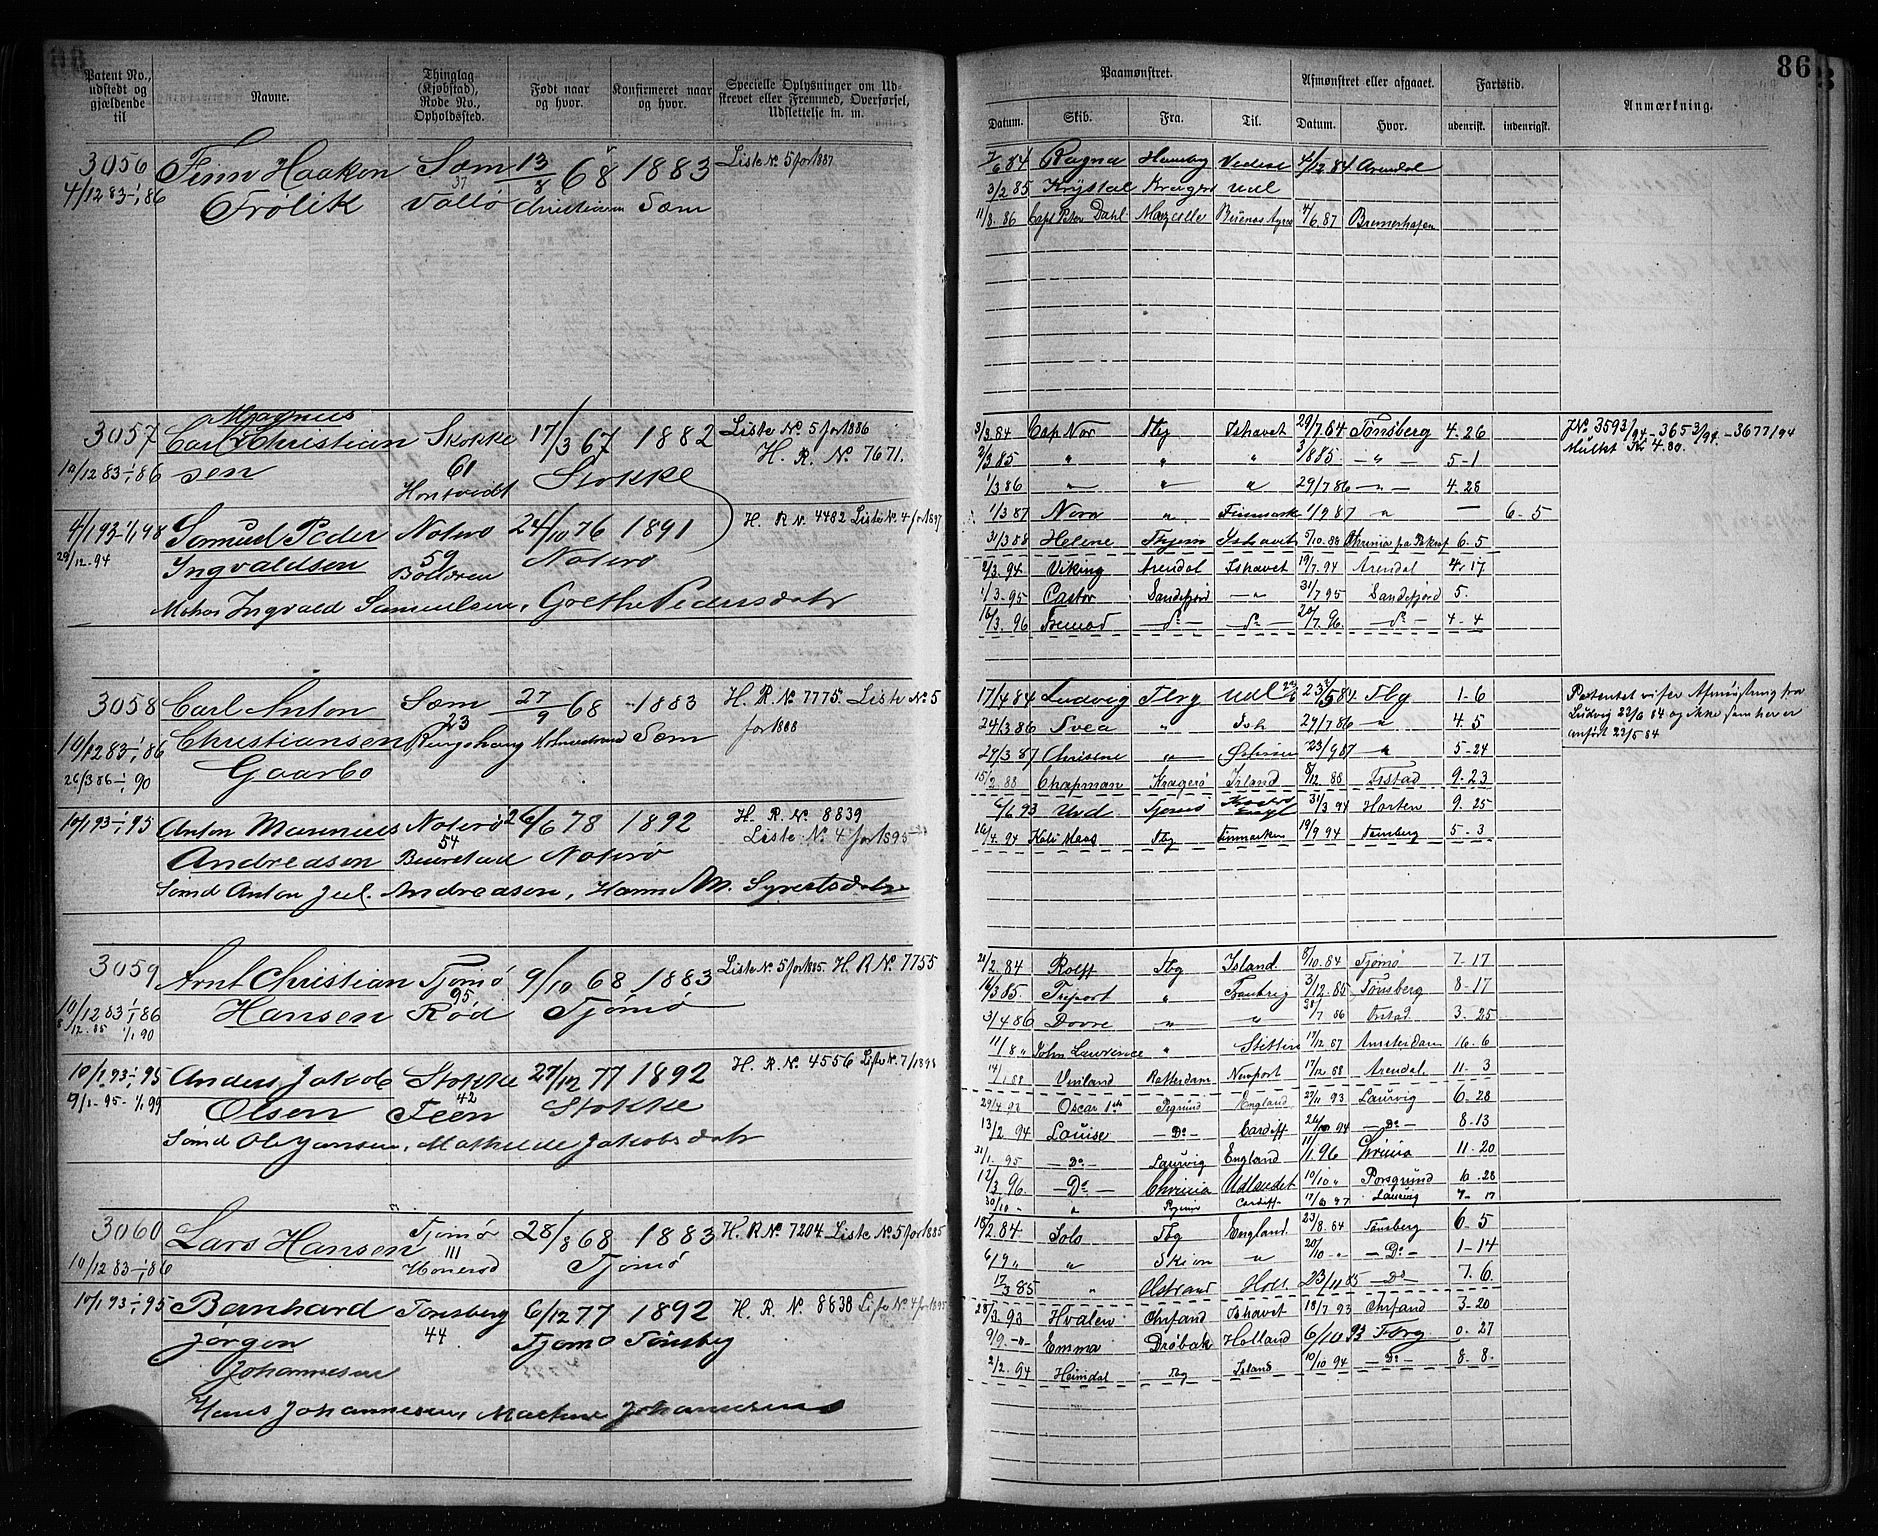 86
Patent No., udstedt og gjældende til
Navne.
Thinglag (Kjøbstad), Rode No., Opholdssted.
Født naar og hvor.
Konfirmeret naar og hvor.
Specielle Oplysninger om Udskrevet eller Fremmed, Overførsel, Udslettelse m. m.
Paamønstret.
Afmønstret eller afgaaet.
Fartstid.
Anmærkning.
Datum. Skib. Fra. Til. Datum. Hvor. udenrigsk. indenrigsk.
3056 Finn Haakon Sæm 13/8 68 1883 Liste No 5 for 1887
4/12 83-1/1 86 Frølik 37 Vallø Christiania Sæm
7/6 84 Ragna 84 Arendal
3/2 85 Krystal Udl
11/8 86 Capt Peter Dahl Marseille Buenos Ayres 4/6. 87 Bremerhafen
Magnus
3057 Carl Christian Stokke 17/3 67 1882 Liste No 5 for 1886
10/12 83-1/1 86 sen 61 Stokke H. R. No 7671.
4/1 93-1/1 98 Samuel Peder Noterø 24/10 76 1891 H. R. No. 4482 Liste No. 4 for 1897
29/12-94 Ingvaldsen 59 Bolæren Noterø
Ingvald Samuelsen, Gocthe Pedersdatr
3/3 84 Cap Nor Tbg Ishavet 29/7 84 Tønsberg 4. 26
2/3 85 " " " 3/8 85 - " - 5-1
1/3 86 " " " 29/7 86 - " - 4. 28
1/3 87 Nora " Finmark 1/9 87 " — 6-5
31/3 88 Helene Ishavet 5/10. 88 6. 5
2/3. 94 Viking Arendal Ishavet 19/7. 94 Arendal 4. 17
1/3. 95 Castor Sandefjord - " - 31/7 95 Sandefjord 5.
16/3. 96 Fremad - Do - - Do - 20/7. 96 - Do - 4-4
JNo 3593/94 - 3653/94. - 3677/94
Mulkt Kr 4.80.
3058 Carl Anton Sæm 27/9 68 1883 H. R. No 7775. Liste No 5
10/12 83-1/1 86 Christiansen 23 Ringshaug Sæm for 1888
26/3 86-1/1 90 Gaarbo
10/1 93-1/1 95 Anton Marinius Noterø 26/6 78 1892 H. R. No. 8839
Andreasen 54 Noterø Liste No 4 for 1895
Sønd Anton Jul. Andreasen, Hanne M. Syvertsdatr
17/4 84 Ludvig Tbrg Udl 23/5 84 Tbg 1-6
24/3 86 Svea " Ish 29/7 86 " 4. 5
29/3 87 Christine " 23/9 87 " 5-24
15/2. 88 Chapman Kragerø Island 8/12. 88 9. 23
6/1 93 Urd 31/3 94 Horten 9. 25
26/4. 94 Tbg Finmarken 19/9 94 Tønsberg 5-3
Patentet viser Afmønstring fra
Ludvig 22/6 84 og ikke som her er
anført 23/5 84
3059 Arnt Christian Tjømø 9/10 68 1883 Liste No. 5 for 1885. H. R No. 7755
10/12 83-1/1 86 Hansen 95 Rød Tjømø
8/12. 85 1/1 90
10/1 93-1/1 95 Anders Jakob Stokke 27/12 77 1892 H. R. No. 4556 Liste No. 7/1898
9/1-95-1/1 99 Olsen 42 Feen Stokke
Sønd Ole Jansen, Mathilde Jakobsdatr
21/2. 84 Rolff Tbg Island 8/10. 84 Tjømø 7. 17
16/3 85 Freport " 31/12. 85 Tønsberg 8-17
3/4 86 Dovre " " 30/7 86 3. 25
11/8 " John Lawrence " Stettin 17/12 87 Amsterdam 16. 6
14/1 88 Vinland Rotterdam Newport 17/12 88 Arendal 11. 3
29/4 93 Oscar 1ste England 27/11 93 Laurvig 6. 28
13/2. 94 Louise - Do - Cardiff 26/10 94 - Do - 8. 13
31/1. 95 - Do - Laurvig England 11/1. 96 Chrinia 11. 20
12/3 96. - Do - Chrinia Udlandet 10/10 " Porsgrund 6. 28
30/10 - " Cardiff 97 Laurvig
3060 Lars Hansen Tjømø 28/8 68 1883 H. R No. 7204 Liste No. 5 for 1885
10/12 83-1/1 86 111 Honerød Tjømø
10/1 93-1/1 95 Bernhard Tønsberg 6/12 77 1892 H. R. No 8838 Liste No. 4 for 1895
Jørgen 44 Tjømø Tønsbg
Johannesen
Hans Johannesen, Mathine Johannesens
2. 84 Solo Tbg England 23/8. 84 Tønsberg 6. 5
6/9 " " Skien " 20/10 - " - Do - 1-14
17/3 85 " Holl 23/11 85 - Do - 7. 6
28/3. 93 Hvalen Chrsand Ishavet 18/7 93 Chrsand 3-20
9/9. - " Emma Drøbak Holland 6/10 93 Tbrg 0. 27
2/2. 94 Heimdal Tbg Island 10/10 94 - Do - 8. 8.